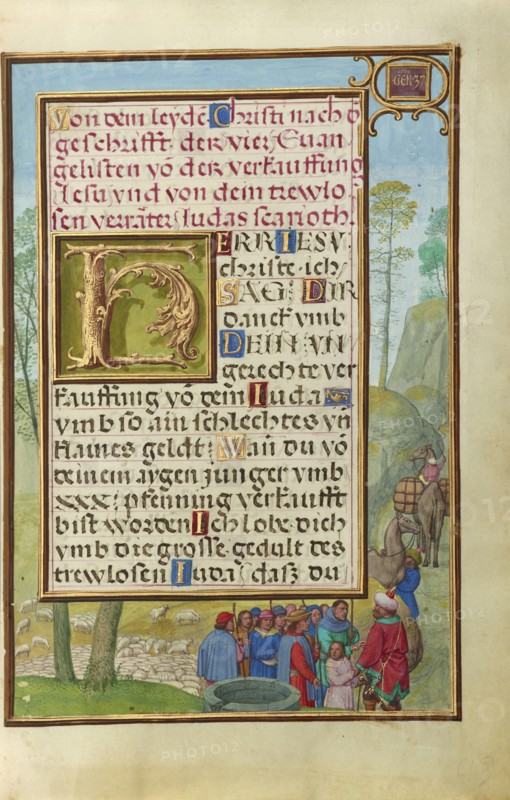 GEN·37
Von dem leydē Christi nach d̄
geschrifft der vier Euan
gelisten vō der verkauffung
Iesu vnd von dem trewlo
sen verräter Iudas scarioth.
HERR IESV
christe ich
SAG DIR
danck vmb
DEIN VN
gerechte ver
kauffung vō dem Iuda
vmb so ain schlechtes vn̄
klaines geldt Wan̄ du vō
deinem aygen junger vmb
XXX pfenning verkaufft
bist worden Ich lobe dich
vmb die grosse gedult des
trewlosen Iuda dasz du
PHOTO12